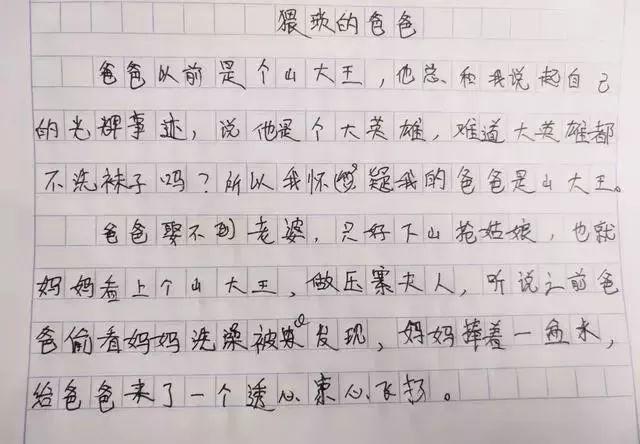 猥琐的爸爸
爸爸以前是个山大王，他总和我说起自己
的光辉事迹，说他是个大英雄，难道大英雄都
不洗袜子吗？所以我怀疑我的爸爸是山大王。
爸爸娶不到老婆，只好下山抢姑娘，也就
妈妈看上个山大王，做压寨夫人，听说之前爸
爸偷看妈妈洗澡被发现，妈妈捧着一盆水，
给爸爸来了一个透心束心飞扬。